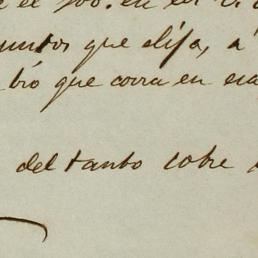 e el 500. en el
untos que elija, á
bió que corra en
del tanto sobre